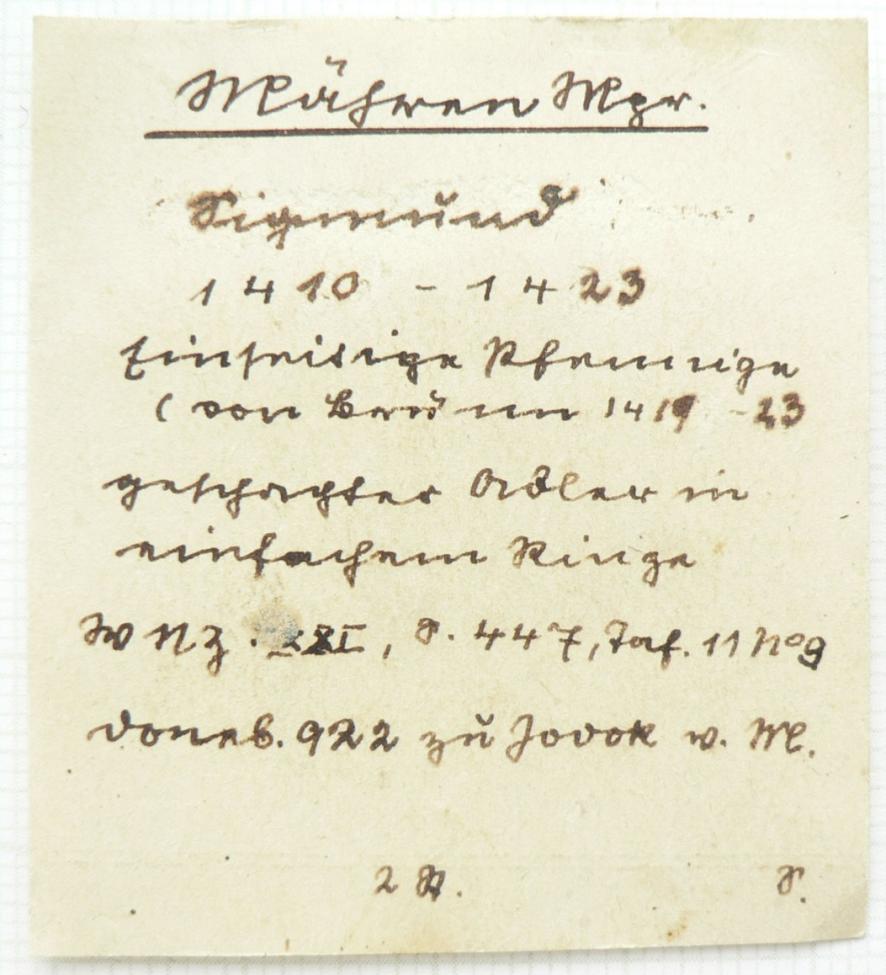 Mähren Mgr.
Sigmund
1410 - 1423
Einseitige Pfennige
(von Brünn 1419 - 23
geschachter Adler in
einfachem Ringe
W N Z. XXI, S. 447, Taf. 11 No 9
Doneb. 922 zu Jodok v. M.
2 St. S.